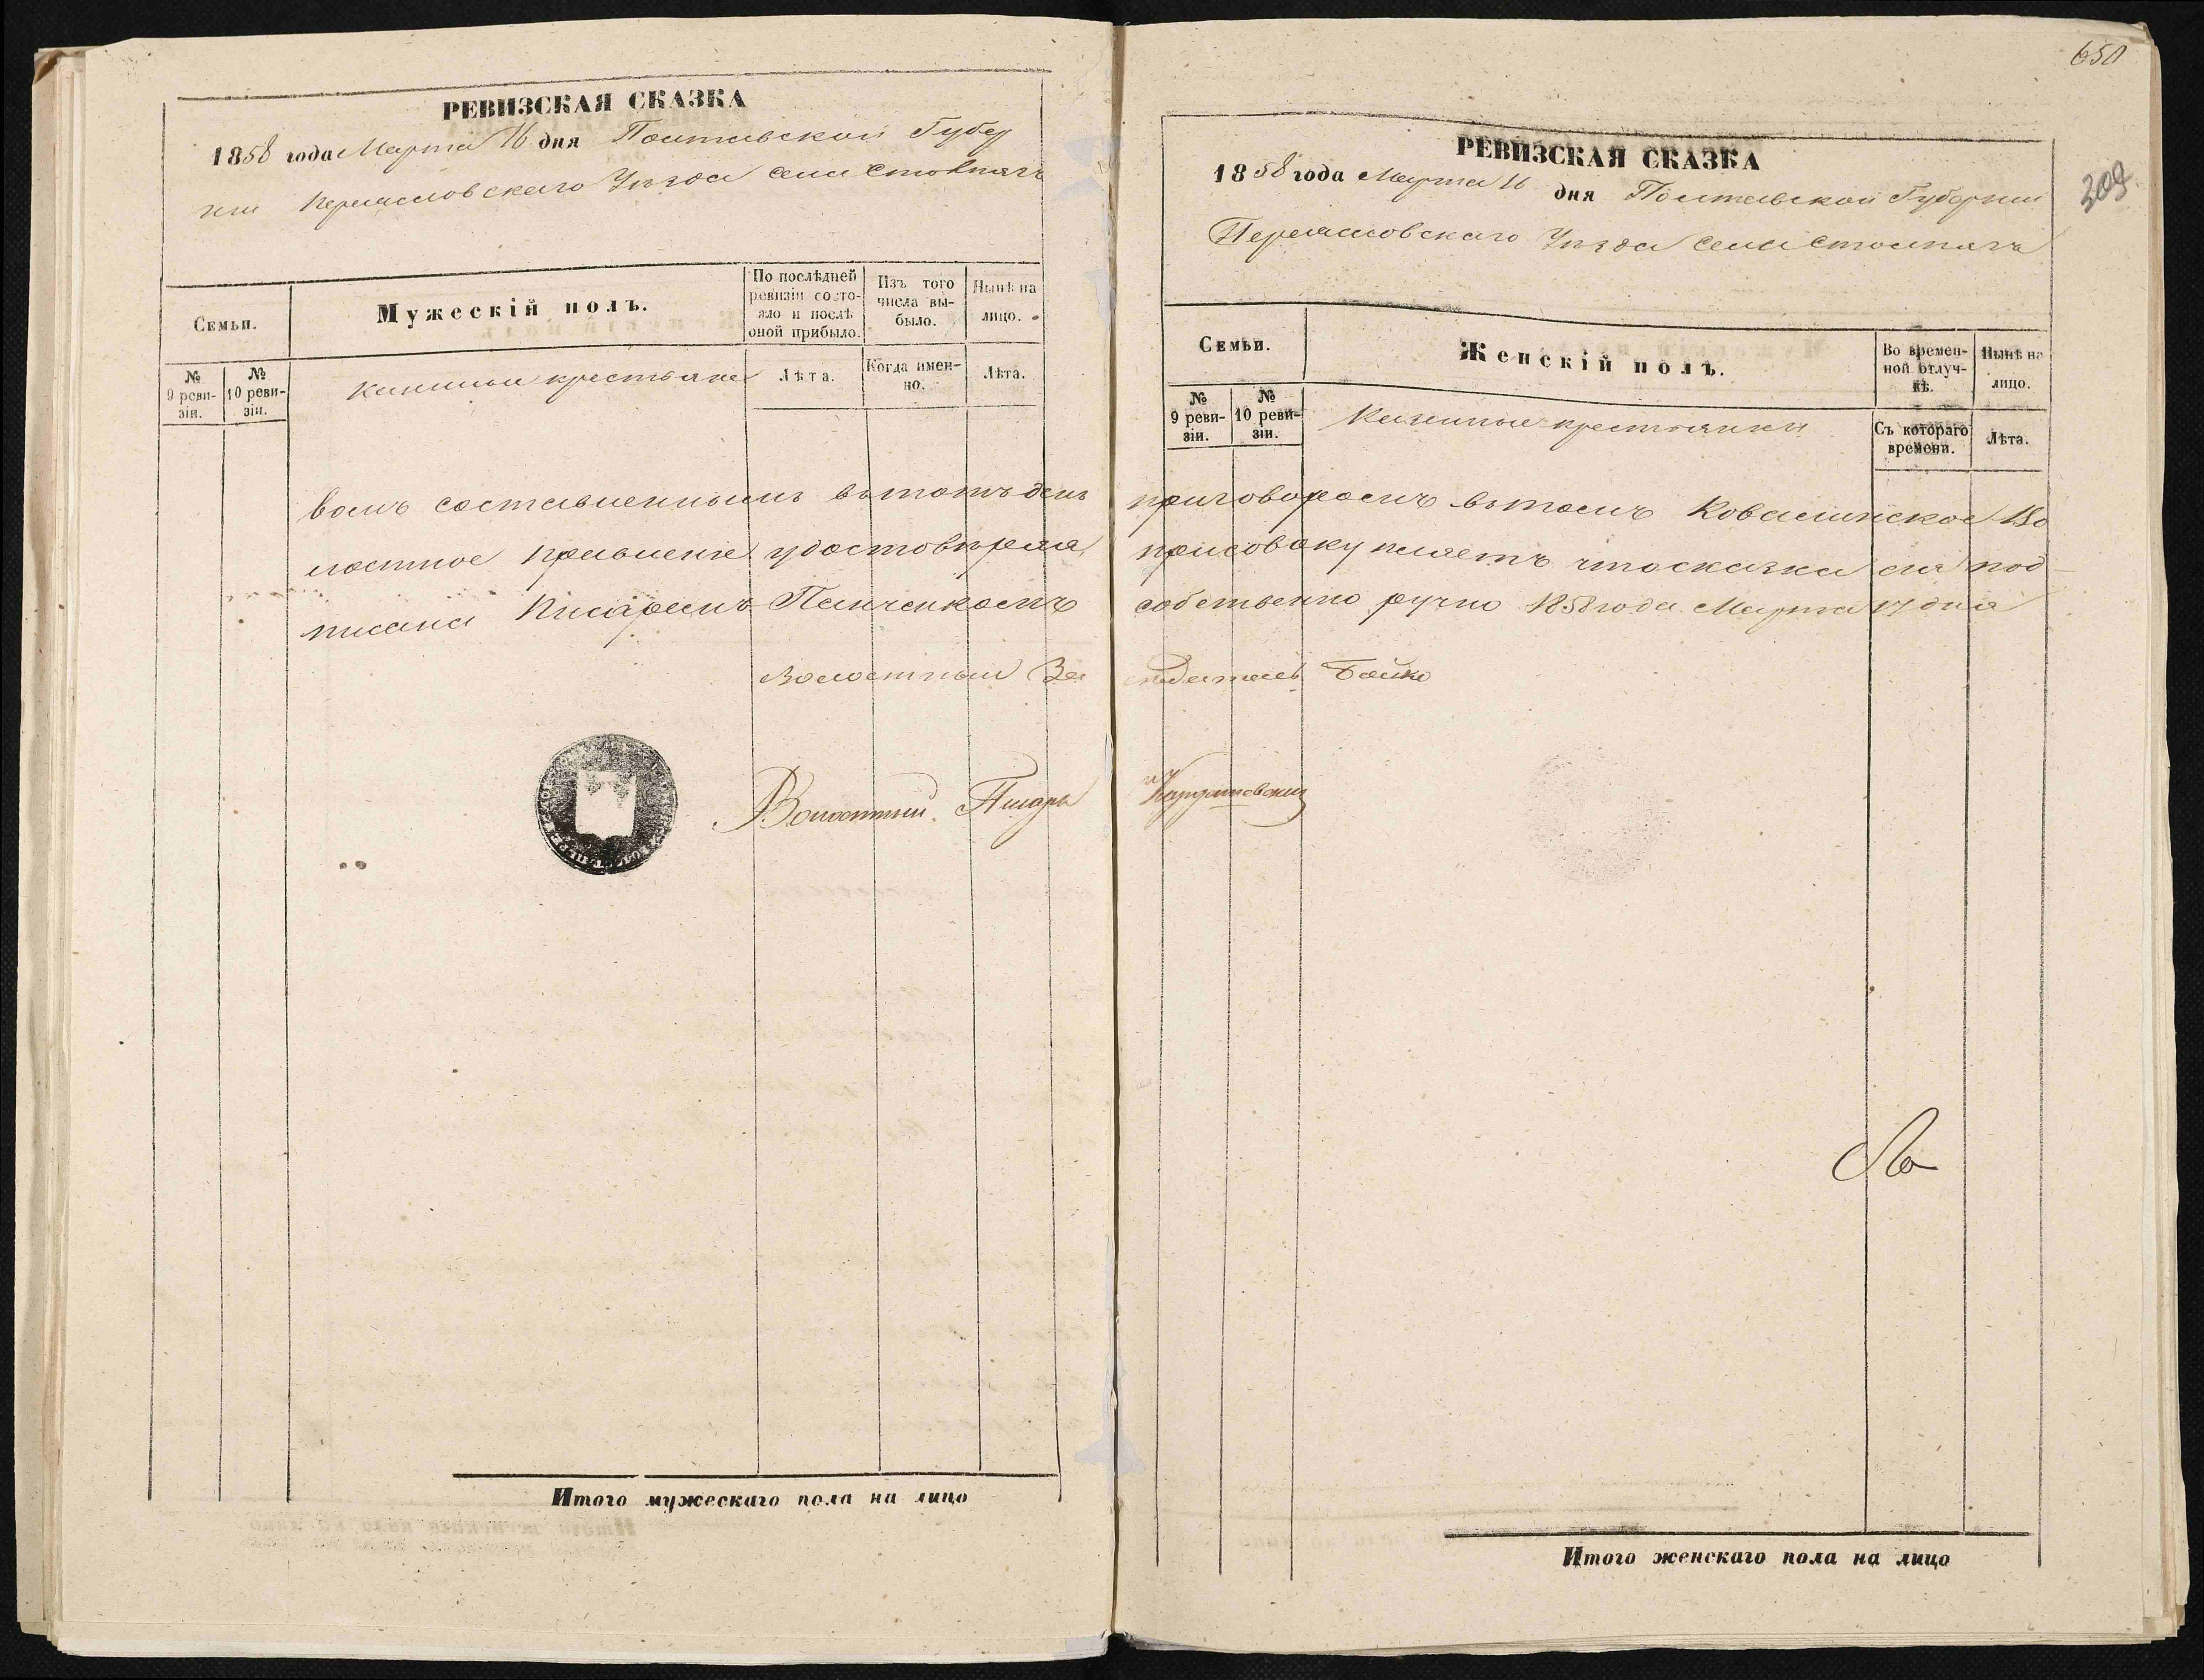 РЕВИЗСКАЯ СКАЗКА
1858 года Марта 16 дня Полтавской Губер
ніи Переяславскаго Уѣзда села Стовпягъ
Семьи.
Мужескій полъ.
По послѣдней ревизіи состояло и послѣ оной прибыло.
Изъ того числа выбыло.
Нынѣ на лицо.
№ 9 ревизіи.
№ 10 ревизіи.
Казенныи крестьяне
Лѣта.
Когда именно.
Лѣта.
вомъ составленнымъ въ тотъ день
лостное правленіе удостовѣряя
писана Писаремъ Панченкомъ
Волостный За
Волостный Писарь
Итого мужескаго пола на лицо
650
309
РЕВИЗСКАЯ СКАЗКА
1858 года Марта 16 дня Полтавской Губерніи
Переяславскаго Уѣзда села Столпягъ
Семьи.
Женскій полъ.
Во временной отлучкѣ.
Нынѣ на лицо.
№ 9 ревизіи.
№ 10 ревизіи.
Казенные крестьянки
Съ котораго времени.
Лѣта.
приговоромъ въ томъ Ковалинское Во
присовокупляетъ что сказка сія под
собственно ручно 1858 года Марта 17 дня
седатель Бойко
Итого женскаго пола на лицо